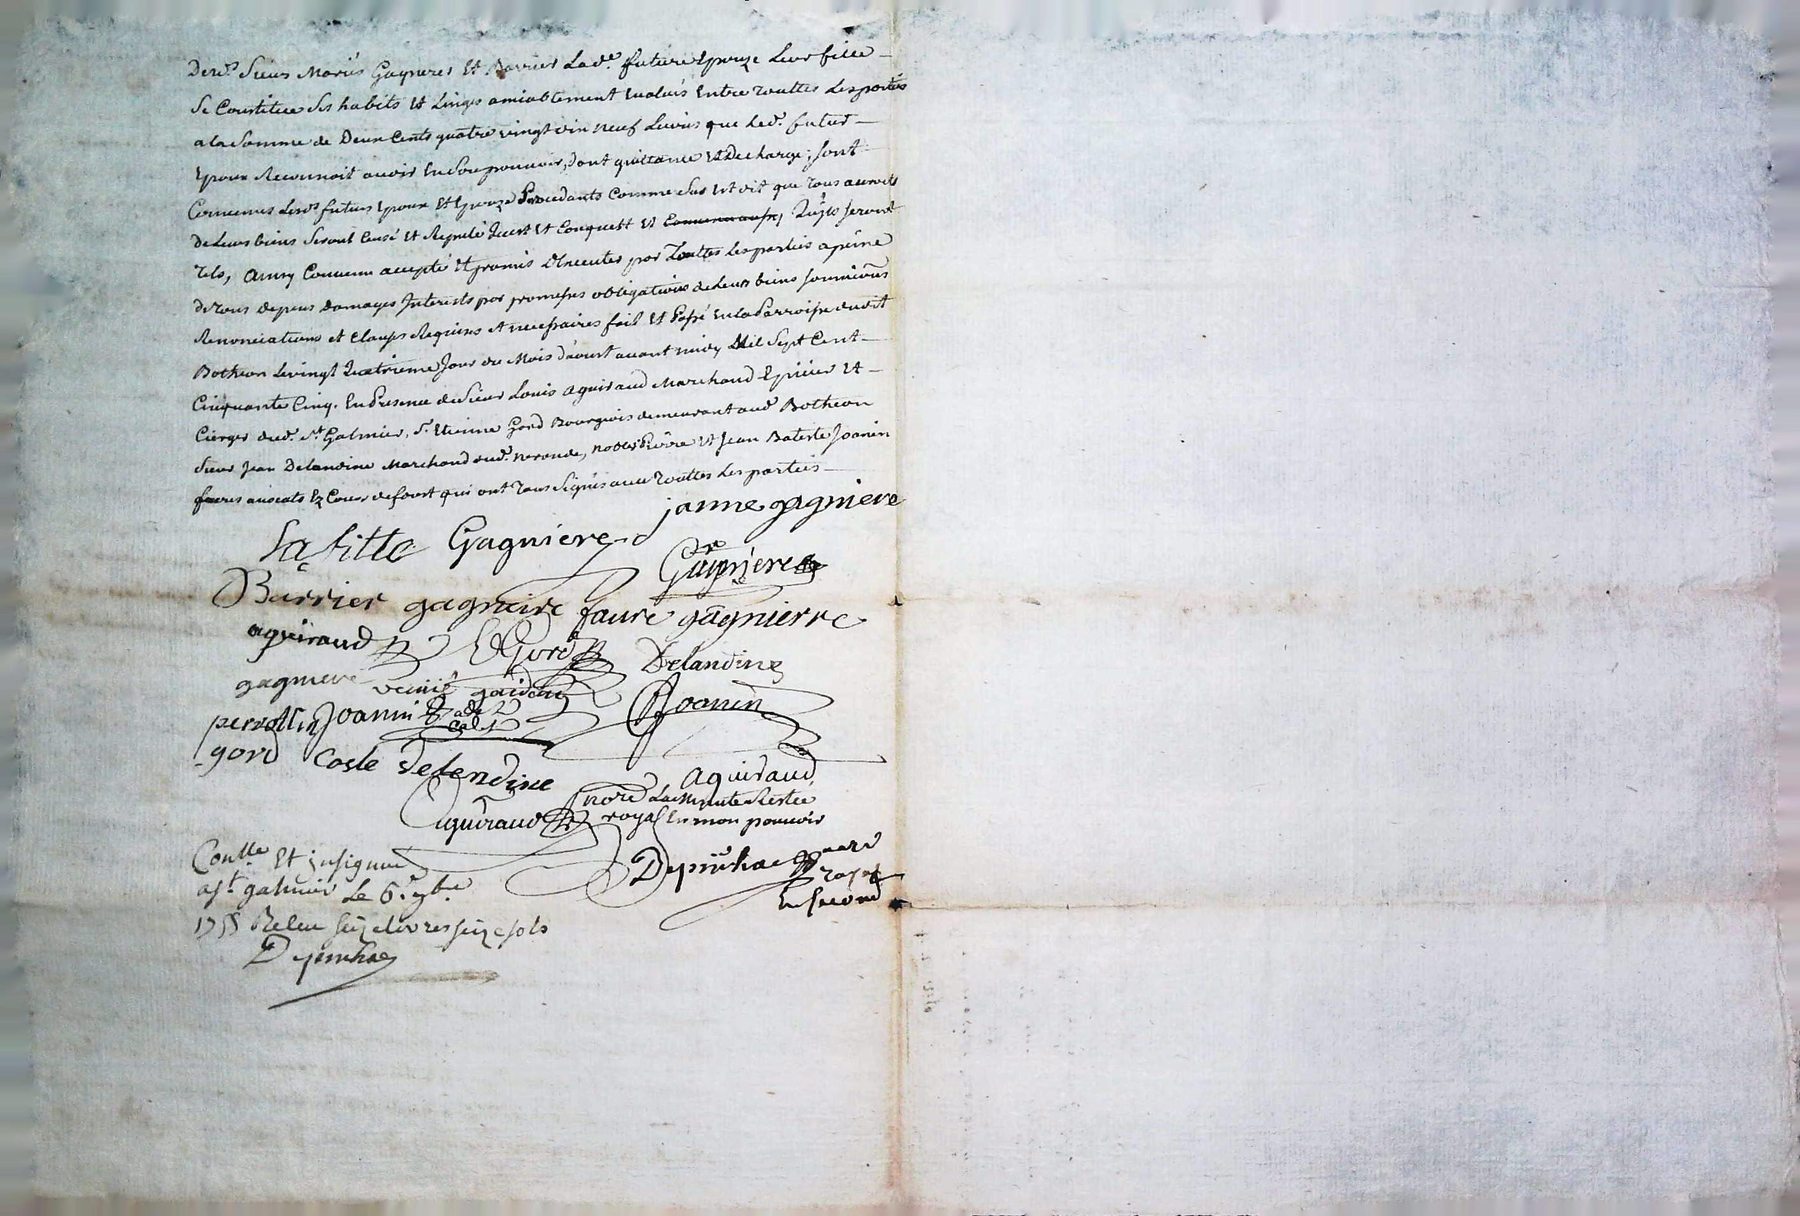 Desd. Sieurs Mariés Gagneres Et Barrier Lad.e future Epouze Leur fille
Se Constitue Ses habits Et Linges amiablement Evalués Entre Touttes Les parties
a la Somme de Deux Cents quatre vingt dix neuf Livres que Led. futur
Epoux Reconnoit avoir En Son pouvoir, dont quittance Et Decharge; Sont
Convenus Lesds futurs Epoux Et Epouze Procedants Comme dus Est dit que Tous
De Leurs biens Seront Censé Et Reputé Et Conquest Et Seront
Tels, Ainsy Convenu accepté Et promis Executer por Touttes Les parties a peine
de Tous depens domages Interests por promesses obligations de Leurs biens Soumissions
Renonciations et Clauses Requises et necessaires fait Et Passé En La Parroisse dudit
Botheon Le vingt Quatrieme Jour du Mois daoust avant midy Mil Sept Cent
Cinquante Cinq. En Presence de Sieur Louis aguiraud Marchand Epicier Et
Cierger dud. St Galmier, Sr. Etienne Gord Bourgeois demeurant aud Botheon
Sieur Jean Delandine Marchand dud. neronde, nobles Pierre Et Jean Batiste Joanin
freres avocats Ez Cours de forest qui ont Tous Signés avec Touttes Les parties
janne gagniere
Lafitte Gagniere
Gagniere
Barrier gagnaire faure gagnierre
aguiraud E Gord Delandine
gagniere
perrottin Joanin Joanin
gord Coste delendine
aguiraud
nore La Minute Restée
aguiraud royal En mon pouvoir
Conlle Et jnsignué
Depinhac nore
royal
En Second
a St galmier Le 6e 7bre
1755 Recu Seize livres seize sols
Depinhac